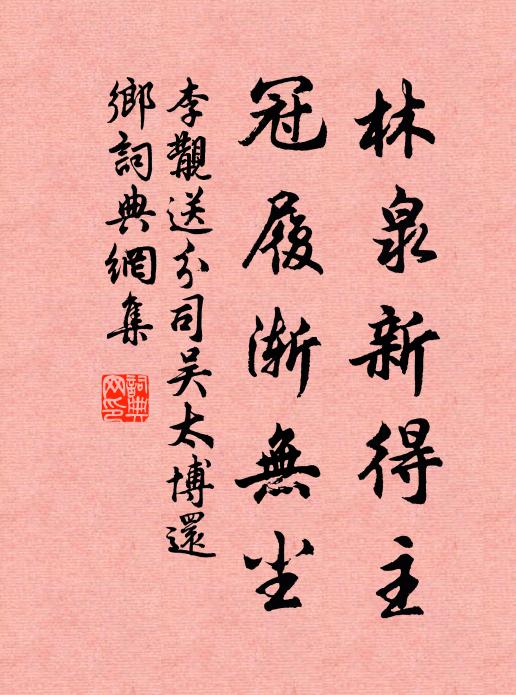 林泉新得主
冠履漸無尘
李覯送分司吴太博還
鄉詞典網集
詞典
网印